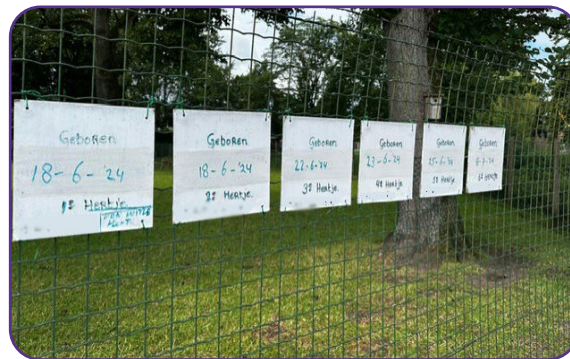 Geboren
18-6-'24
1e Hertje.
Geboren
18-6-'24
2e Hertje.
Geboren
22-6-'24
3e Hertje.
Geboren
23-6-'24
4e Hertje.
Geboren
25-6-'24
5e Hertje
Geboren
6e Hertje